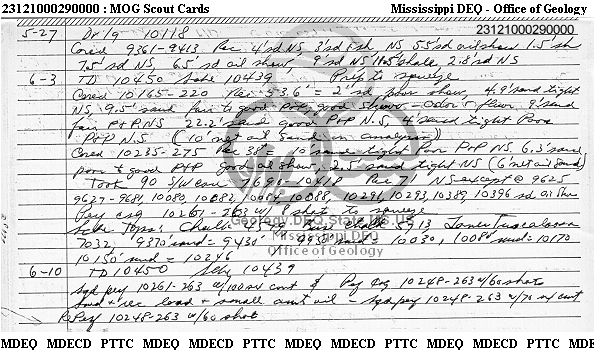 23121000290000 : MOG Scout Cards Mississippi DEQ - Office of Geology
23121000290000
5-27 Drlg 10118
Cored 9361-9413 Rec 4' sd NS, 3' sd Fsh, NS, 5.5' sd oil show 1.5' sh
7.5' sd NS, 6.5' sd oil show, 9' sd NS 11.5' shale, 2.8' sd NS
6-3 TD 10450 Schl 10439 Prep to squeeze
Cored 10,165-220 Rec 53.6' = 2' sd, poor show, 4.9' sand tight
NS, 9.5' sand fair to good P&P, good show - Odor & fluor, 9' sand
fair P&P N.S. 22.2' sand good P&P N.S, 4' sand tight Poor
P&P N.S. (10' net oil sand in analysis)
Cored 10235-275 Rec 38' = 10' sand tight Poor P&P NS 6.3' sand
poor to good P&P good oil show, 2.5' sand tight NS (6' net oil sand)
Took 90 S/W cores 7696-10412 Rec 7 NS except @ 9625
9627-9681, 10080, 10082, 10084, 10088, 10291, 10293, 10389, 10396 sd, oil
Perf csg 10261-263 w/ 8 shots to squeeze
Schl Tops: Chalk 4549 5913 Lower Tuscaloosa
7032, 9370' sand = 9430' 9950' sand 10030, 10080' sand = 10170
10150' sand = 10246
6-10 TD 10450 Schl 10439
Sqd perf 10261-263 w/100 sx cmt & Perf csg 10248-263 w/60 shots
& rec load & small amt oil - sqd perf 10248-263 w/70 sx cmt
RePerf 10248-263 w/60 shots
Geology DEQ State MS US
Mississippi DEQ
Office of Geology
MDEQ MDECD PTTC MDEQ MDECD PTTC MDEQ MDECD PTTC MDEQ MDECD